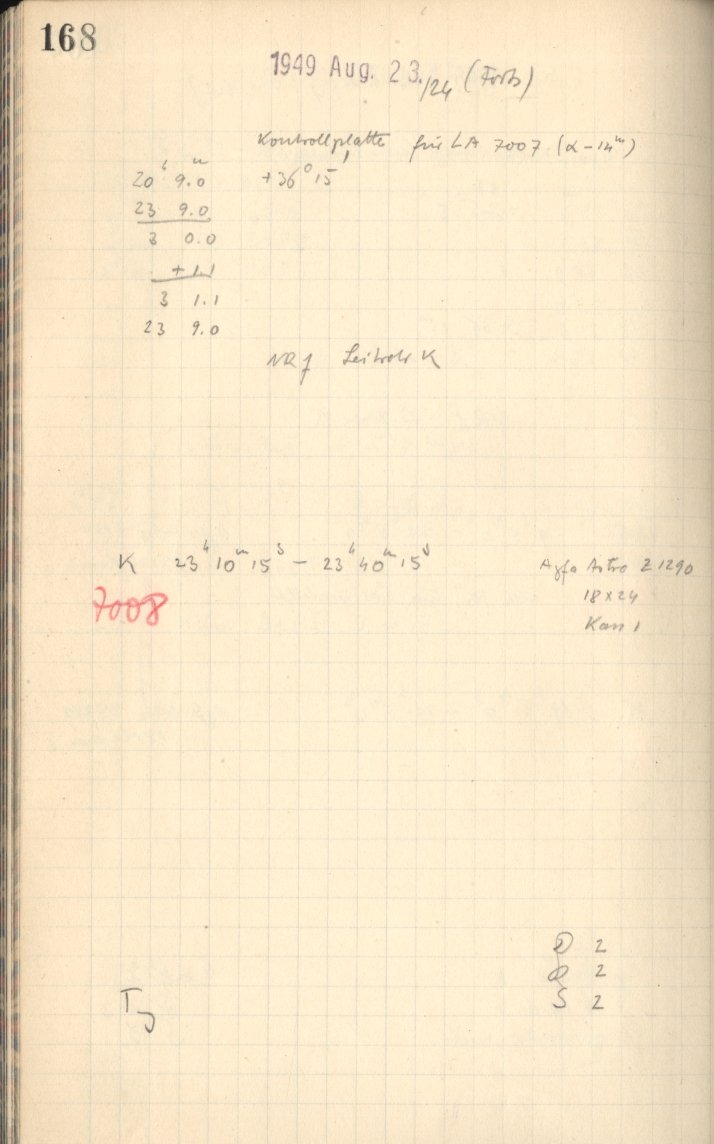 168
1949 Aug. 23./24 (Forts)
Kontrollplatte für LA 7007 (α – 14ᵐ)
20ʰ 9.0ᵐ +36° 15'
23 9.0
3 0.0
+ 1.1
3 1.1
23 9.0
Leitrohr K
K 23ʰ 10ᵐ 15ˢ – 23ʰ 40ᵐ 15ˢ Agfa Astro Z 1290
7008 18 x 24
Kass 1
2
2
S 2